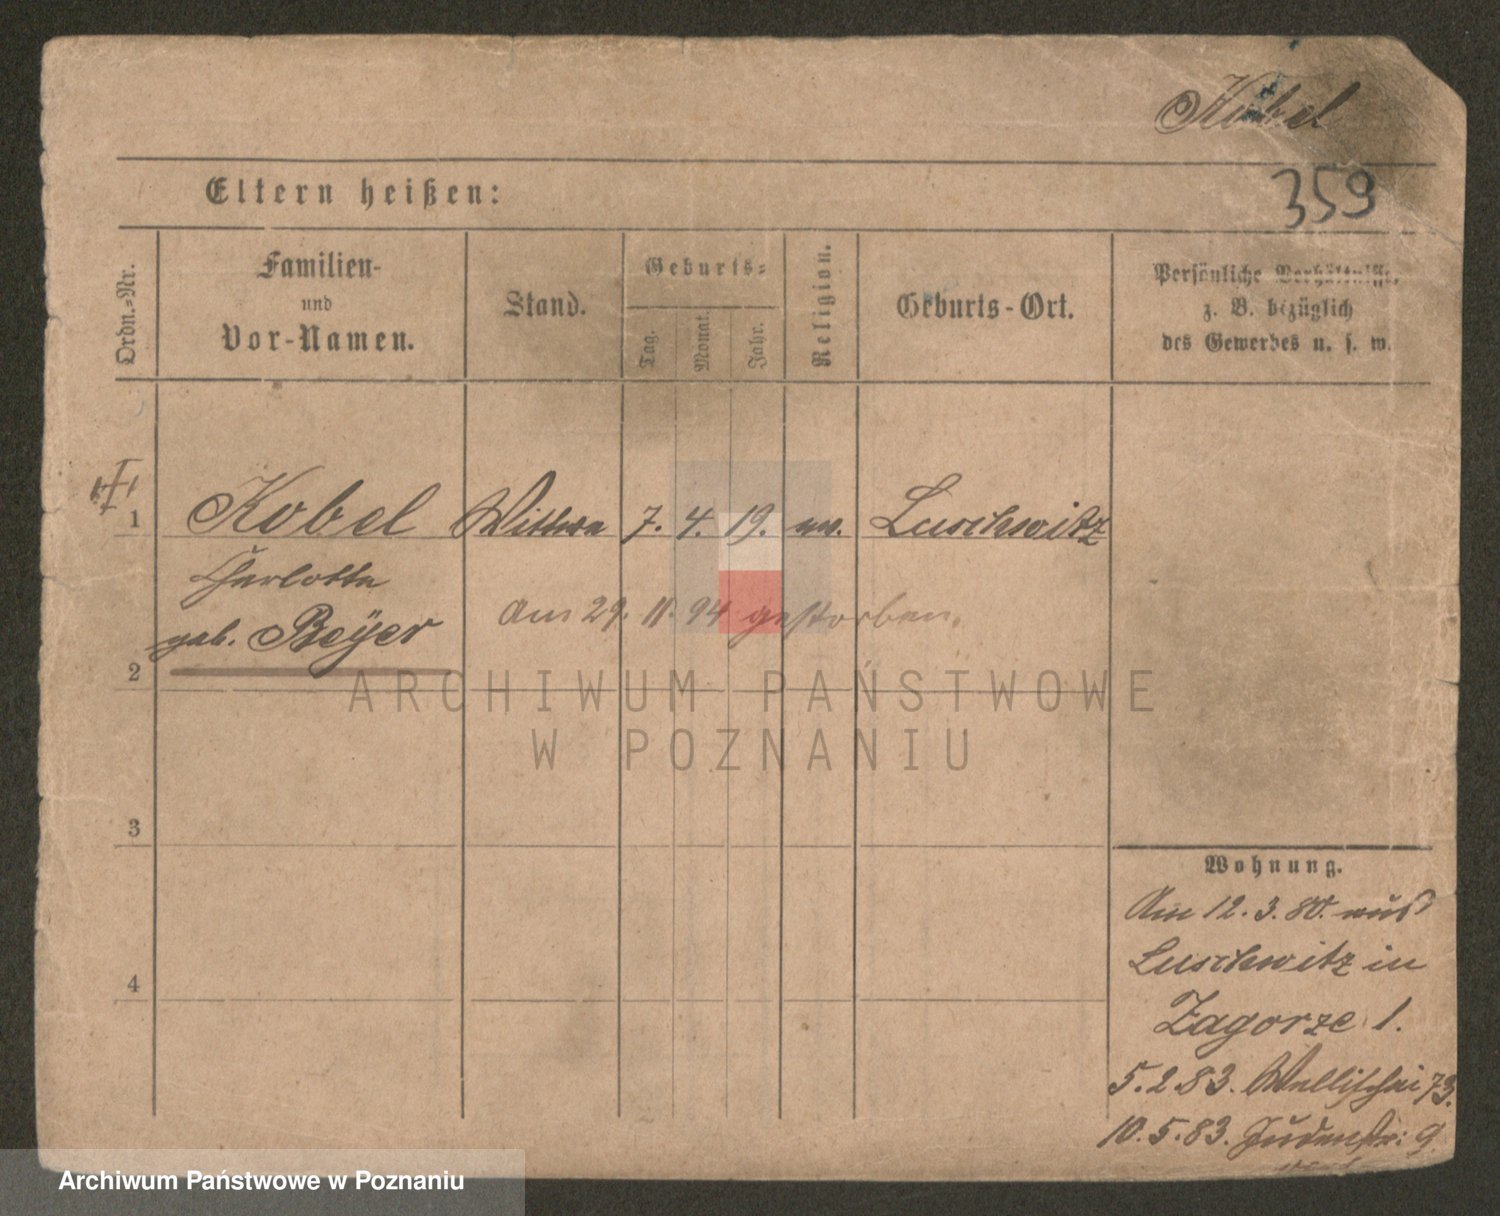 Kobel
Eltern heißen:
359
Ordn.-Nr.
Familien-
und
Vor-Namen.
Stand.
Geburts-
Tag.
Monat.
Jahr.
Religion.
Geburts-Ort.
Persönliche Verhältnisse,
z. B. bezüglich
des Gewerbes u. s. w.
1
Kobel Wittwe 7. 4. 19. ev. Luschwitz
Charlotte
geb. Beÿer
am 29. 11. 94 gestorben.
2
ARCHIWUM PAŃSTWOWE
W POZNANIU
3
4
Wohnung.
Am 12. 3. 80. aus
Luschwitz in
Zagorze 1.
5. 2. 83. Wallischei 73.
10. 5. 83. Judenstr: 9
Archiwum Państwowe w Poznaniu